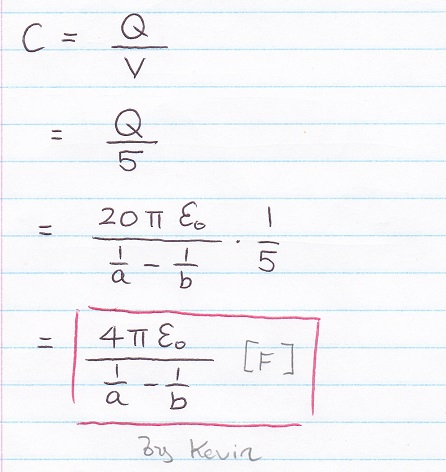 C = Q / V
= Q / 5
= 20π ε₀ / (1/a − 1/b) · 1/5
= 4π ε₀ / (1/a − 1/b) [F]
By Kevin